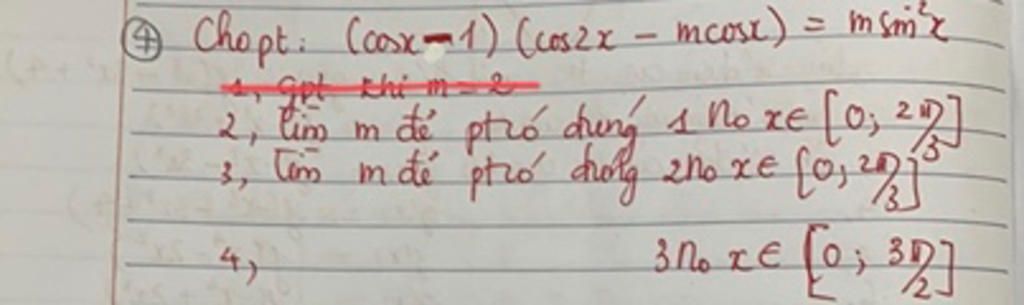 ④ Cho pt: (cosx - 1) (cos2x - mcosx) = msin²x
1, Gpt khi m = 2
2, tìm m để pt có đúng 1 n₀ x∈ [0; 2π/3]
3, Tìm m để pt có đúng 2 n₀ x∈ [0; 2π/3]
4, 3 n₀ x∈ [0; 3π/2]